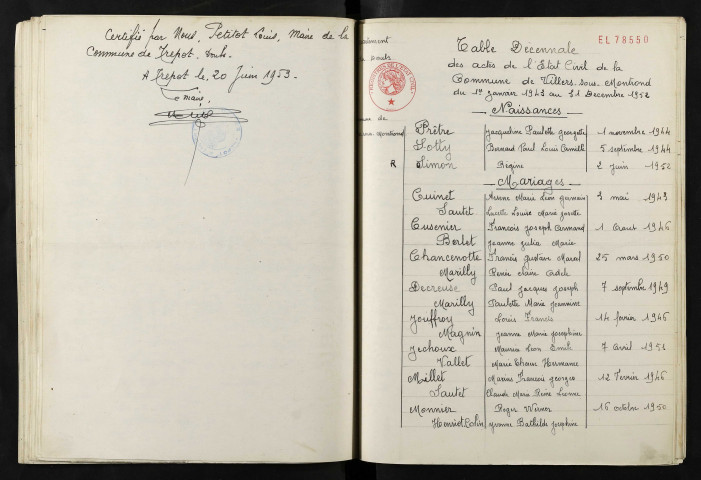 Certifié par Nous, Petitot Louis, Maire de la
Commune de Trepot, Doubs.
A Trepot le 20 Juin 1953.
Le maire,
EL 78550
Table Décennale
des actes de l'Etat Civil de la
Commune de Villers-sous-Montrond
du 1er Janvier 1943 au 31 Decembre 1952
Naissances
Prêtre Jacqueline Paulette Georgette 1 novembre 1944
Sotty Bernard Paul Louis Camille 5 septembre 1944
R Simon Régine 2 Juin 1952
Mariages
Cuinet Marie Léon Germain 3 mai 1943
Sautet Lucette Louise Marie Josette
Cusenier François Joseph Armand 1 août 1946
Berlet Jeanne Julia Marie
Chancenotte Francis Gustave Marcel 25 mars 1950
Marilly Renée Claire Adèle
Decreuse Paul Jacques Joseph 7 septembre 1949
Marilly Paulette Marie Jeannine
Jouffroy Louis Francis 14 février 1946
Magnin Jeanne Marie Joséphine
Jechoux Maurice Léon Emile 7 Avril 1951
Vallet Marie Hermance
Millet Marius François Georges 12 Février 1946
Sautet Claude Marie Reine
Monnier Roger Werner 16 octobre 1950
Henriot Colin Yvonne Bathilde Joséphine